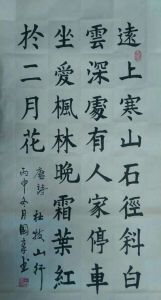 遠上寒山石徑斜白
雲深處有人家停車
坐愛楓林晚霜葉紅
於二月花
唐詩 杜牧山行
丙申冬月國章書